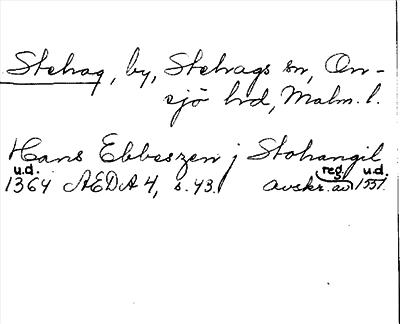 Stehag, by, Stehags sn, On-
sjö hrd, Malm. l.
Hans Ebbeszen j Stohangil
u.d. reg. u.d.
1364 AEDA 4, s. 43. avskr. av 1551.